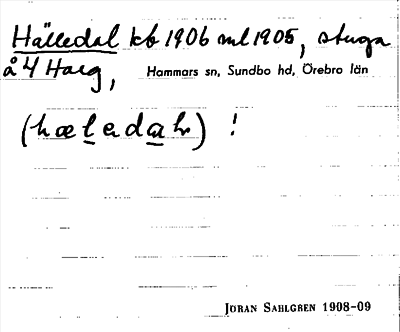 Hälledal kb 1906 ml 1905, stuga
å 4 Harg, Hammars sn, Sundbo hd, Örebro län
(hæledah) !
JÖRAN SAHLGREN 1908-09